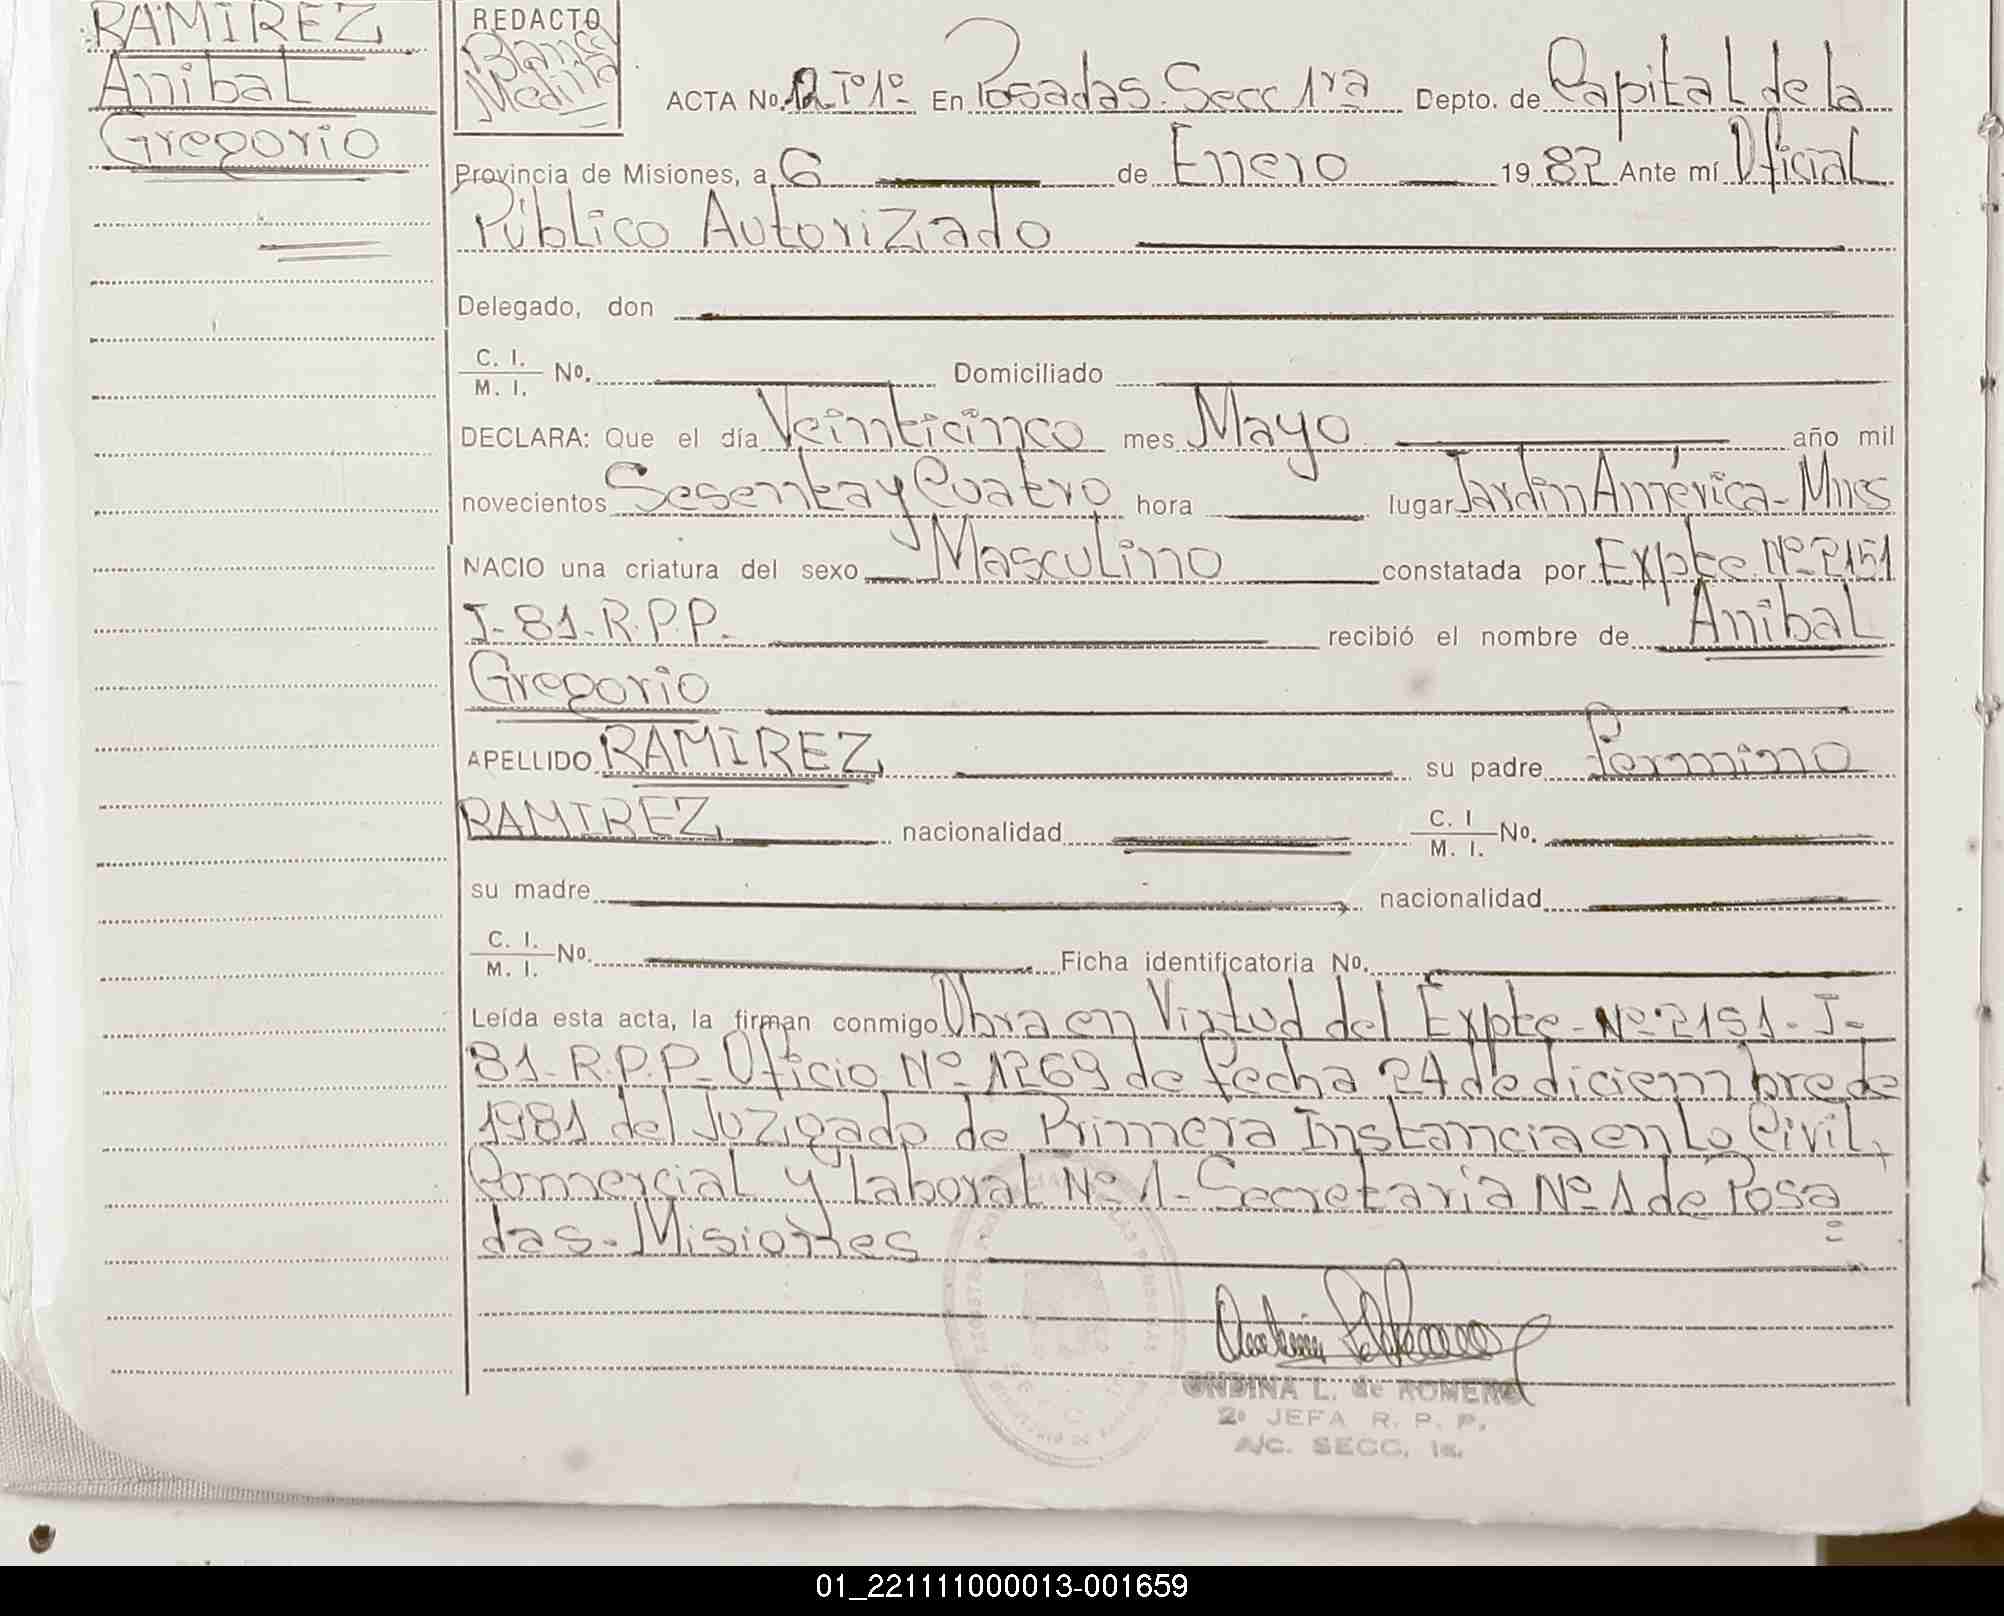 RAMIREZ
Anibal
Gregorio
REDACTO
Blanca
Medina
ACTA No. 12 Tº1º En Posadas. Secc 1ra Depto. de Capital de la
Provincia de Misiones, a 6 de Enero 1982 Ante mí Oficial
Público Autorizado
Delegado, don
C. I.
M. I. No. Domiciliado
DECLARA: Que el día Veinticinco mes Mayo año mil
novecientos Sesenta y Cuatro hora lugar Jardín América - Mnes
NACIO una criatura del sexo Masculino constatada por Expte. Nº 2151
J-81-R.P.P. recibió el nombre de Anibal
Gregorio
APELLIDO RAMIREZ su padre Permino
RAMIREZ nacionalidad C. I
M. I. No.
su madre nacionalidad
C. I.
M. I. No. Ficha identificatoria No.
Leída esta acta, la firman conmigo Obra en Virtud del Expte - Nº 2151 - J-
81-R.P.P- Oficio Nº 1269 de fecha 24 de diciembre de
1981 del Juzgado de Primera Instancia en Lo Civil,
Comercial y laboral Nº 1- Secretaría Nº 1 de Posa
das - Misiones
ONDINA L. de ROMERO
2º JEFA R. P. P.
A/C. SECC. 1a.
01_221111000013-001659